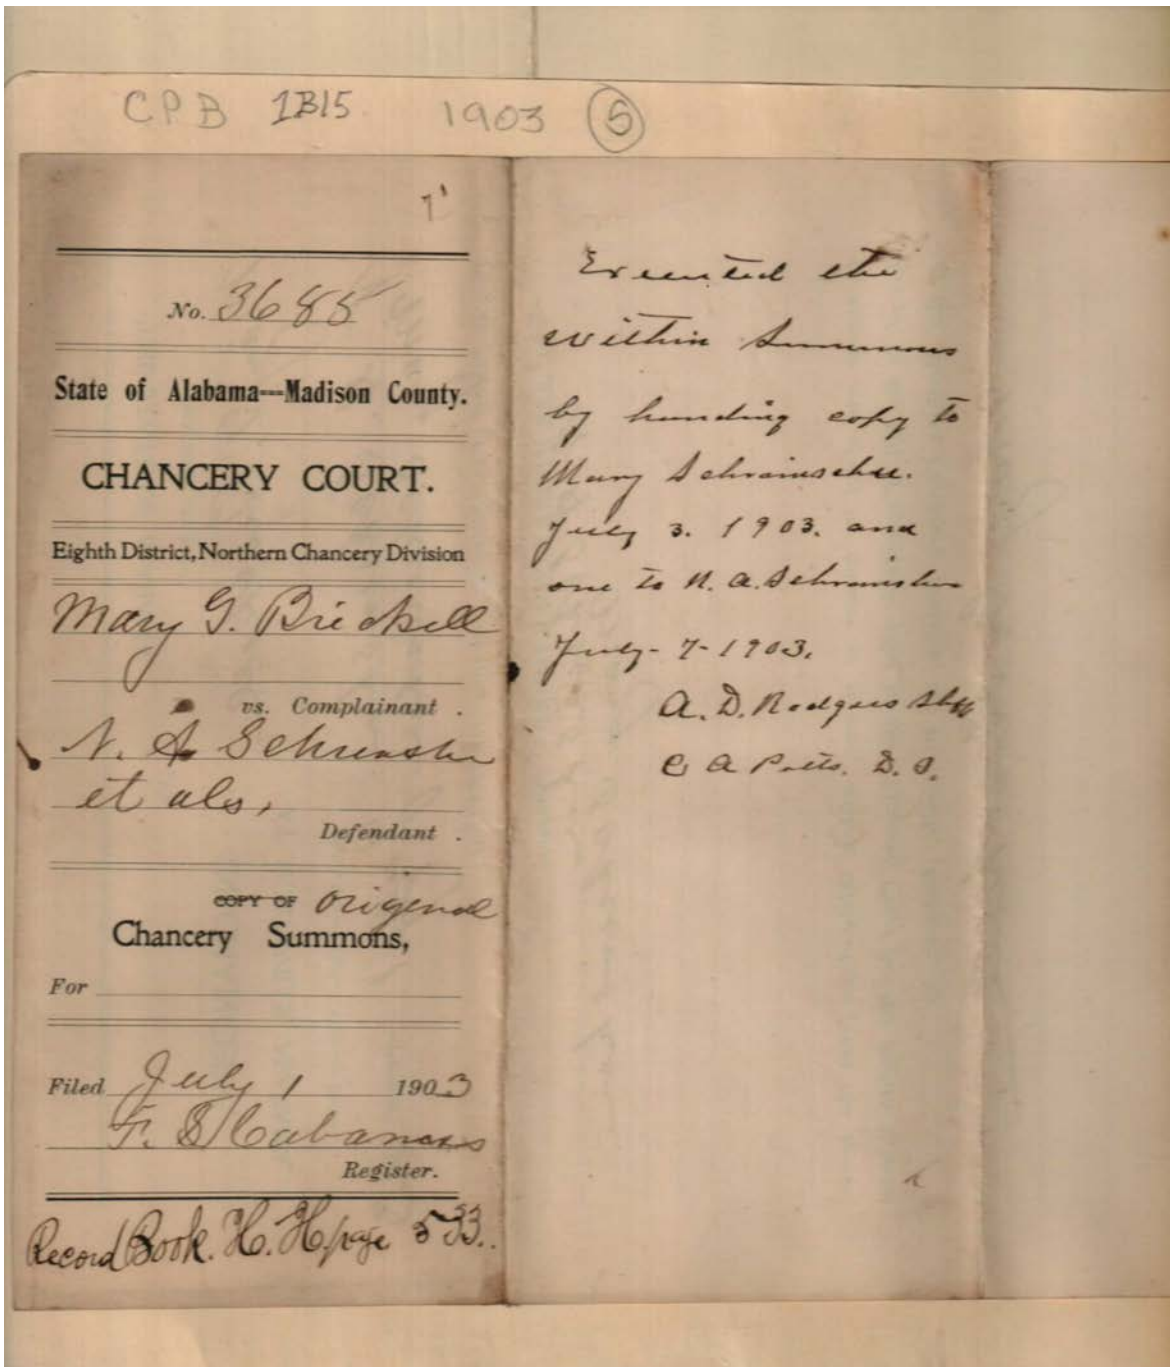 CPB 1B15 1903 5
No. 3685
State of Alabama---Madison County.
CHANCERY COURT.
Eighth District, Northern Chancery Division
Mary G. Brickell
vs. Complainant .
N. A
et als,
Defendant .
COPY OF original
Chancery Summons,
For
Filed July 1 1903
F. S Cabaniss
Register.
Record Book. H. H. page 533.
Executed the
within Summons
by handing copy to
Mary
July 3. 1903. and
one to N. A.
July - 7 - 1903.
A. D. Rodgers Shff
C A D. S.